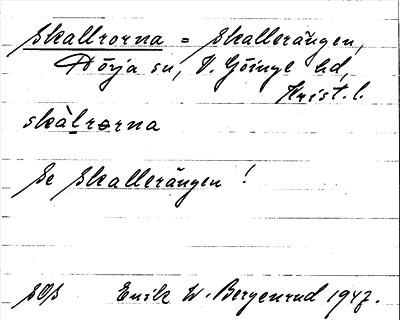 Skallrorna = Skallerängen,
Hörja sn, V. Göinge hd,
Krist. l.
skàlrorna
Se Skallerängen!
SOS Enik W. Bergenrud 1947.